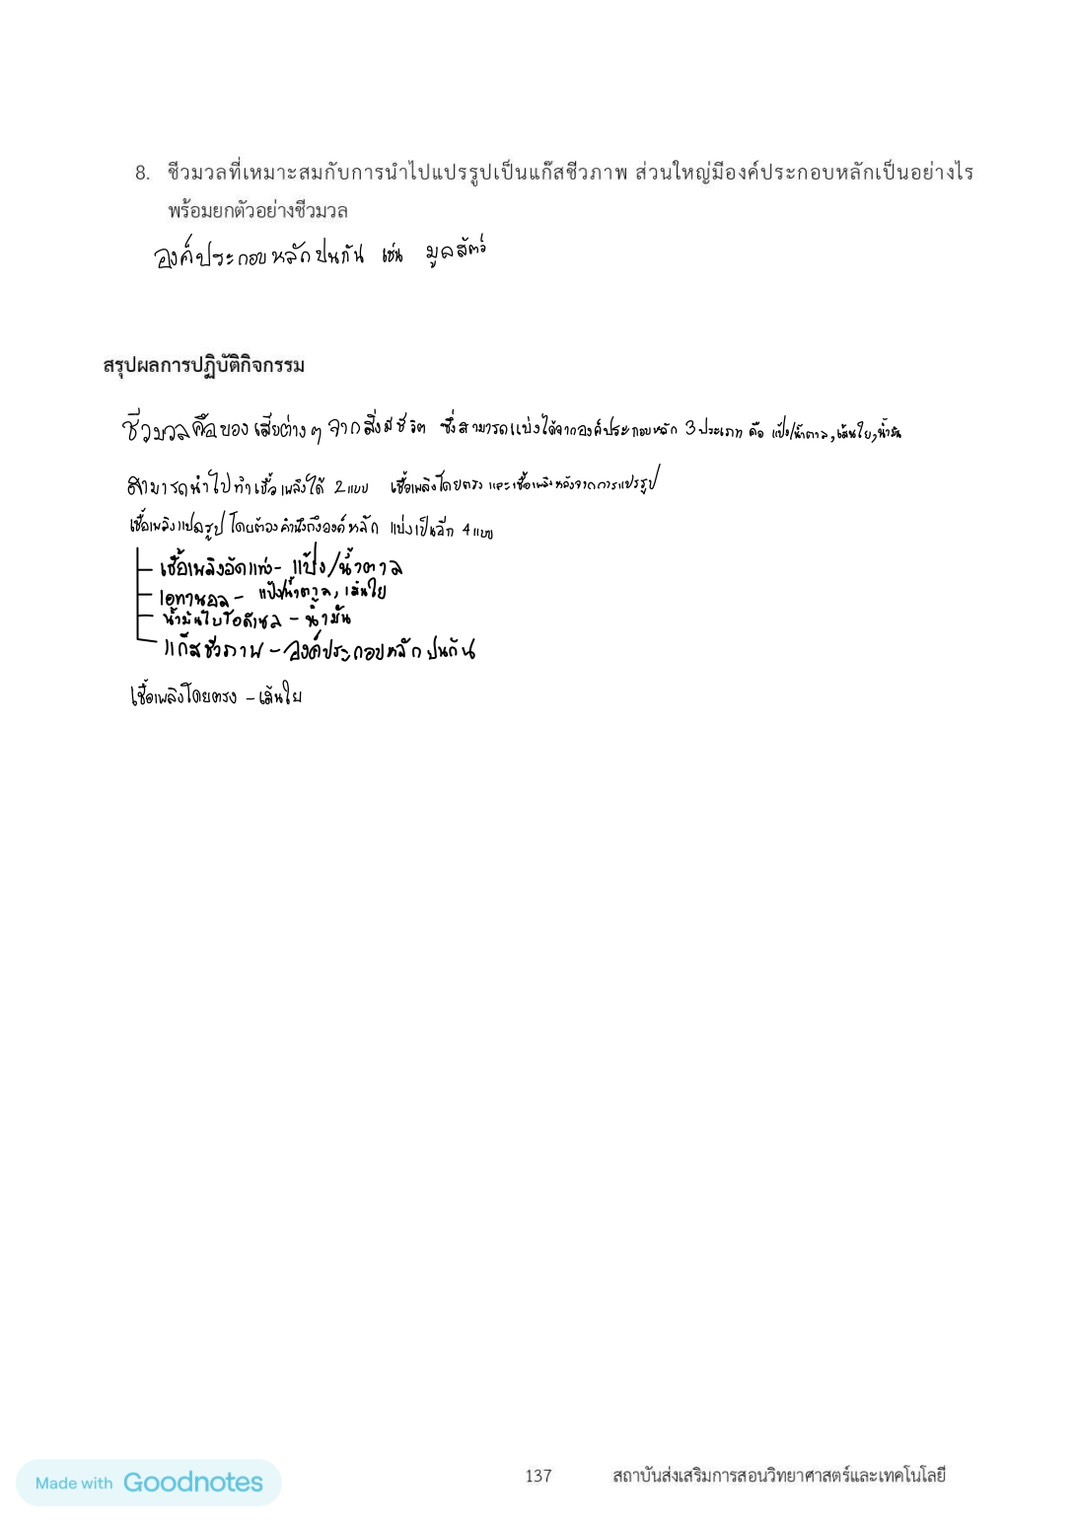 8. ชีวมวลที่เหมาะสมกับการนำไปแปรรูปเป็นแก๊สชีวภาพ ส่วนใหญ่มีองค์ประกอบหลักเป็นอย่างไร
พร้อมยกตัวอย่างชีวมวล
องค์ประกอบหลักปนกัน เช่น มูลสัตว์
สรุปผลการปฏิบัติกิจกรรม
ชีวมวลคือของเสียต่างๆ จากสิ่งมีชีวิต ซึ่งสามารถแบ่งได้จากองค์ประกอบหลัก 3 ประเภท คือ แป้ง/น้ำตาล, เส้นใย, น้ำมัน
สามารถนำไปทำเชื้อเพลิงได้ 2 แบบ เชื้อเพลิงโดยตรง และเชื้อเพลิงหลังจากการแปรรูป
เชื้อเพลิงแปลรูป โดยต้องคำนึงถึงองค์หลัก แบ่งเป็นอีก 4 แบบ
เชื้อเพลิงอัดแท่ง - แป้ง/น้ำตาล
เอทานอล - แป้ง/น้ำตาล, เส้นใย
น้ำมันไบโอดีเซล - น้ำมัน
แก๊สชีวภาพ - องค์ประกอบหลักปนกัน
เชื้อเพลิงโดยตรง - เส้นใย
Made with Goodnotes
137 สถาบันส่งเสริมการสอนวิทยาศาสตร์และเทคโนโลยี